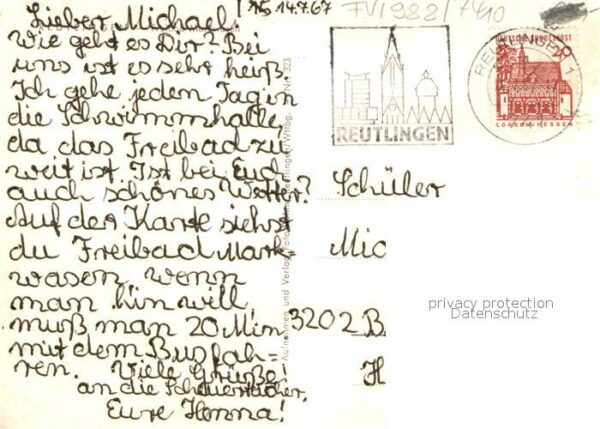 Lieber Michael!
14.7.67
Wie geht es Dir? Bei
uns ist es sehr heiß.
Ich gehe jedem Tag in
die Schwimmhalle,
da das Freibad zu
weit ist. Ist bei Euch
auch schönes Wetter?
Auf der Karte siehst
du Freibad Mark-
wasen, wenn
man hin will,
muß man 20 Min
mit dem Bus fah-
ren. Viele Grüße!
an die Scheuertücher.
Eure Hanna!
REUTLINGEN
REUTLINGEN 1
DEUTSCHE BUNDESPOST
20
LORSCH/HESSEN
Aufnahmen und Verlag
Schüler
Mic
3202 B
H
privacy protection
Datenschutz